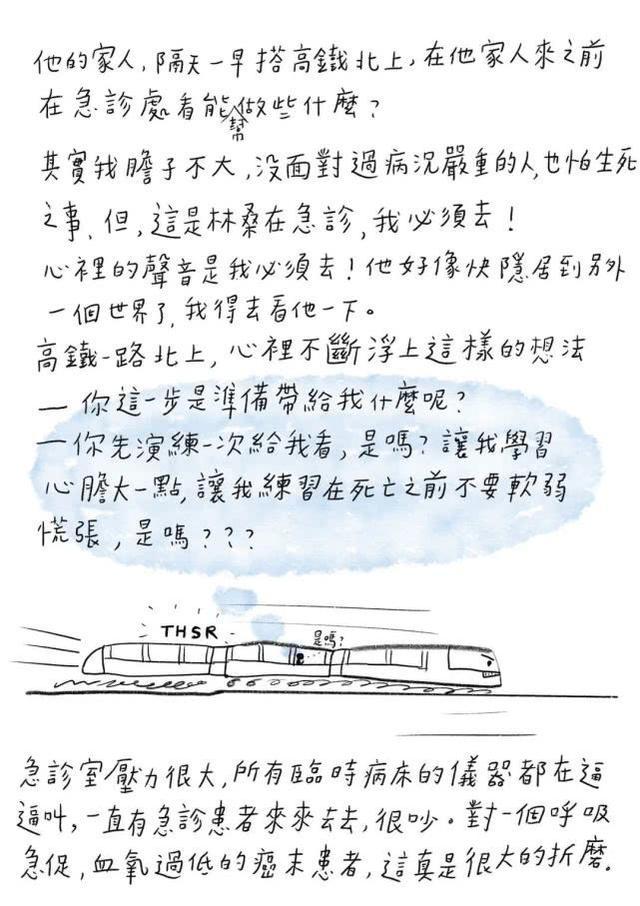 他的家人,隔天一早搭高鐵北上,在他家人來之前
在急診處看能幫做些什麼?
其實我膽子不大,沒面對過病況嚴重的人,也怕生死
之事、但,這是林桑在急診,我必須去!
心裡的聲音是我必須去!他好像快隱居到另外
一個世界了,我得去看他一下。
高鐵一路北上,心裡不斷浮上這樣的想法
— 你這一步是準備帶給我什麼呢?
— 你先演練一次給我看,是嗎?讓我學習
心膽大一點,讓我練習在死亡之前不要軟弱
慌張,是嗎???
THSR
是嗎?
急診室壓力很大,所有臨時病床的儀器都在逼
逼叫,一直有急診患者來來去去,很吵。對一個呼吸
急促,血氧過低的癌末患者,這真是很大的折磨.